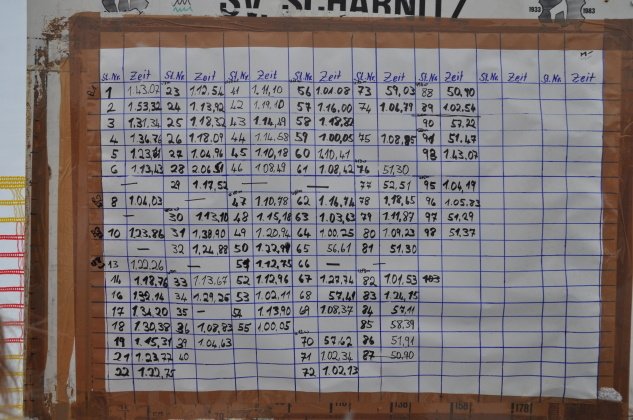 SV. SCHARNITZ
1933 1983
St.Nr. Zeit St.Nr. Zeit St.Nr. Zeit St.Nr. Zeit St.Nr. Zeit St.Nr. Zeit St.Nr. Zeit St.Nr. Zeit
1 1.43.02 23 1.12.54 41 1.11,10 56 1.01.08 73 59,03 88 50,90
2 1.53,32 24 1.13,92 42 1.19.10 57 1.16,00 74 1.06,79 89 1.02.54
3 1.31,34 25 1.18,32 43 1.14,49 58 1.18,82 90 57.22
4 1.36.76 26 1.18.09 44 1.14.58 59 1.00,05 75 1.08,85 91 51.47
5 1.23.81 27 1.04.96 45 1.10,18 60 1.10,41 93 1.43,07
6 1.13,43 28 2.06.51 46 1.08,49 61 1.08,42 76 51,30
— 29 1.17,52 — 77 52,51 95 1.04,19
8 1.04,03 — 47 1.10,78 62 1.16,74 78 1.18,45 96 1.05.83
— 30 1.13,10 48 1.15,18 63 1.03,63 79 1.11,87 97 51.29
10 1.23.86 31 1.38,90 49 1.20,94 64 1.00.25 80 1.09,23 98 51,37
— 32 1.24,88 50 1.22,99 65 56,61 81 51,30
13 1.22.26 — 51 1.12,75 66 —
14 1.18,76 33 1.13,67 52 1.12,76 67 1.27,74 82 1.01.53 103
16 34 1.29,26 53 1.02,11 68 57,41 83 1.24,15
17 1.34.20 35 — 54 1.13,90 69 1.08,37 84 57,11
18 1.30,38 36 1.08,83 55 1.00,05 85 58,39
19 1.15,31 39 1.04,63 70 57.42 86 51,91
21 1.23,77 40 71 1.02,34 87 50,90
22 1.22,75 72 1.02,13